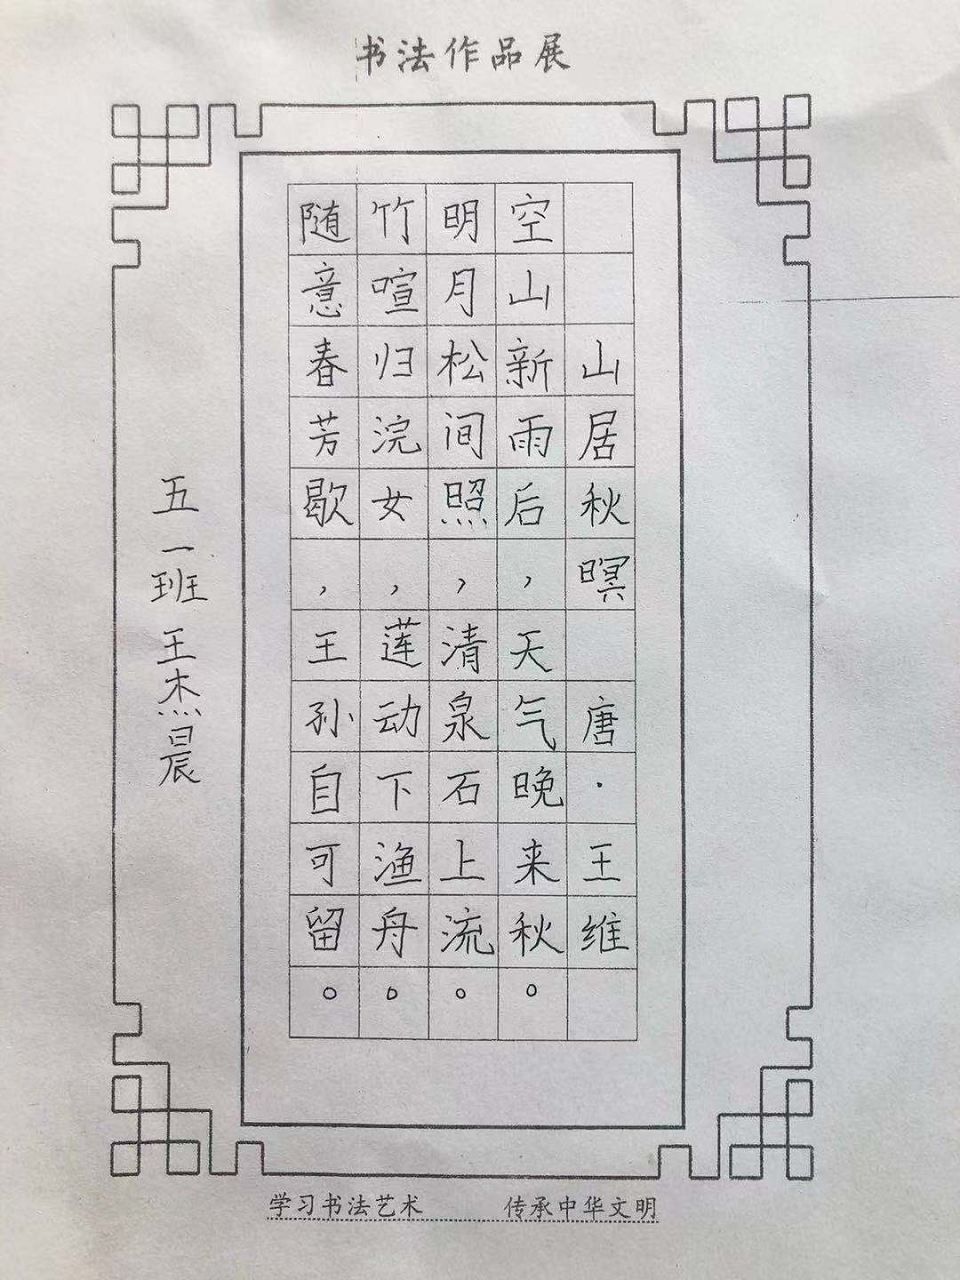 书法作品展
山居秋暝 唐·王维
空山新雨后，天气晚来秋。
明月松间照，清泉石上流。
竹喧归浣女，莲动下渔舟。
随意春芳歇，王孙自可留。
五一班 王杰晨
学习书法艺术 传承中华文明